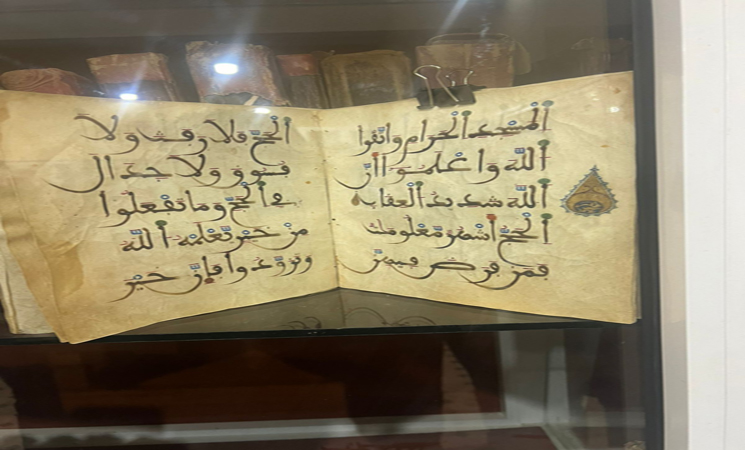 المسجد الحرام واتقوا
الله واعلموا أن
الله شديد العقاب
الحج أشهر معلومات
فمن فرض فيهن
الحج فلا رفث ولا
فسوق ولا جدال
في الحج وما تفعلوا
من خير يعلمه الله
وتزودوا فإن خير